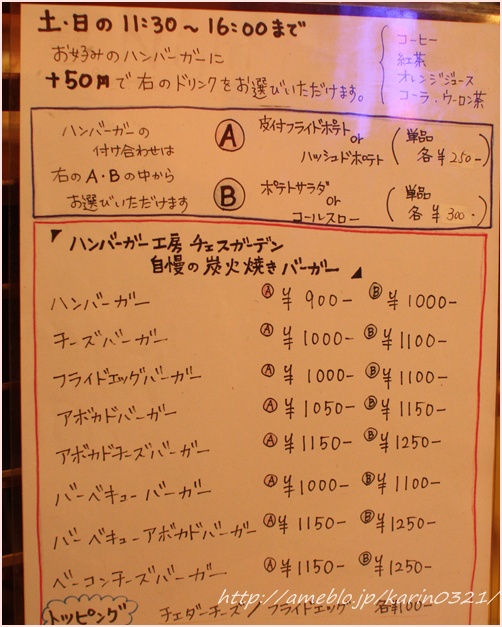 土・日の 11:30〜16:00まで
お好みのハンバーガーに
+50円で右のドリンクをお選びいただけます。
コーヒー
紅茶
オレンジジュース
コーラ・ウーロン茶
ハンバーガーの
付け合わせは
右のA・Bの中から
お選びいただけます
Ⓐ 皮付フライドポテト or ハッシュドポテト (単品 各¥250-)
Ⓑ ポテトサラダ or コールスロー (単品 各¥300-)
ハンバーガー工房 チェスガーデン
自慢の炭火焼きバーガー
ハンバーガー Ⓐ¥900- Ⓑ¥1000-
チーズバーガー Ⓐ¥1000- Ⓑ¥1100-
フライドエッグバーガー Ⓐ¥1000- Ⓑ¥1100-
アボカドバーガー Ⓐ¥1050- Ⓑ¥1150-
アボカドチーズバーガー Ⓐ¥1150- Ⓑ¥1250-
バーベキューバーガー Ⓐ¥1000- Ⓑ¥1100-
バーベキューアボカドバーガー Ⓐ¥1150- Ⓑ¥1250-
ベーコンチーズバーガー Ⓐ¥1150- Ⓑ¥1250-
http://ameblo.jp/karin0321/
トッピング チェダーチーズ/フライドエッグ 各¥100-